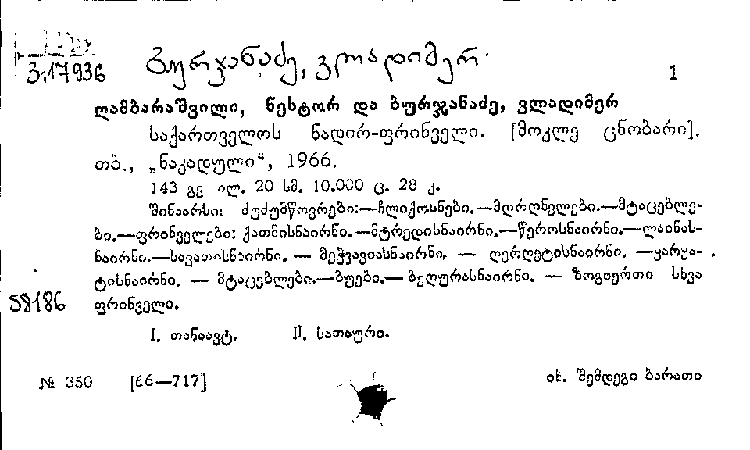 ბურჯანაძე, ვლადიმერ
პ.17936
1
ღამბარაშვილი, ნესტორ და ბურჯანაძე, ვლადიმერ
საქართველოს ნადირ-ფრინველი. [მოკლე ცნობარი].
თბ., „ნაკადული“, 1966.
143 გვ ილ. 20 სმ. 10.000 ც. 28 კ.
შინაარსი: ძუძუმწოვრები:—ჩლიქოსნები.—მღრღნელები.—მტაცებლე-
ბი.—ფრინველები: ქათმისნაირნი.—მტრედისნაირნი.—წეროსნაირნი.—ლაინას-
ნაირნი.—სავათისნაირნი. — მეჭვავიასნაირნი. — ღერღეტისნაირნი. —ყარყა-
ტისნაირნი. — მტაცებლები.—ბუები.— ბეღურასნაირნი. — ზოგიერთი სხვა
58186
ფრინველი.
I. თანაავტ. II. სათაური.
№ 350 [66—717]
იხ. შემდეგი ბარათი